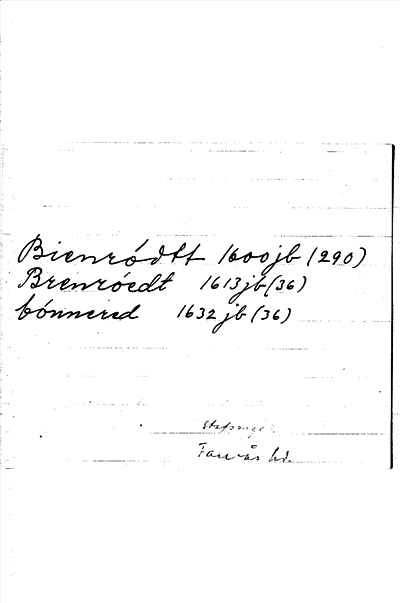 Bienródtt 1600jb (290)
Brenróedt 1613jb (36)
bónnered 1632 jb (36)
Tanrås hd.